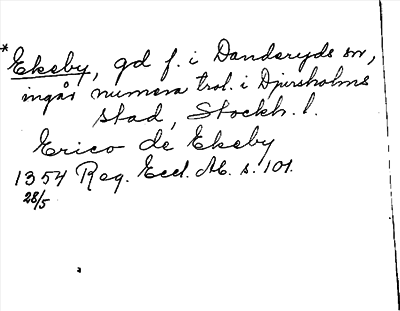 * Ekeby, gd f. i Danderyds sn,
ingår numera trol. i Djursholms
stad, Stockh. l.
Erico de Ekeby
1354 Reg. Eccl. Ab. s. 101.
28/5